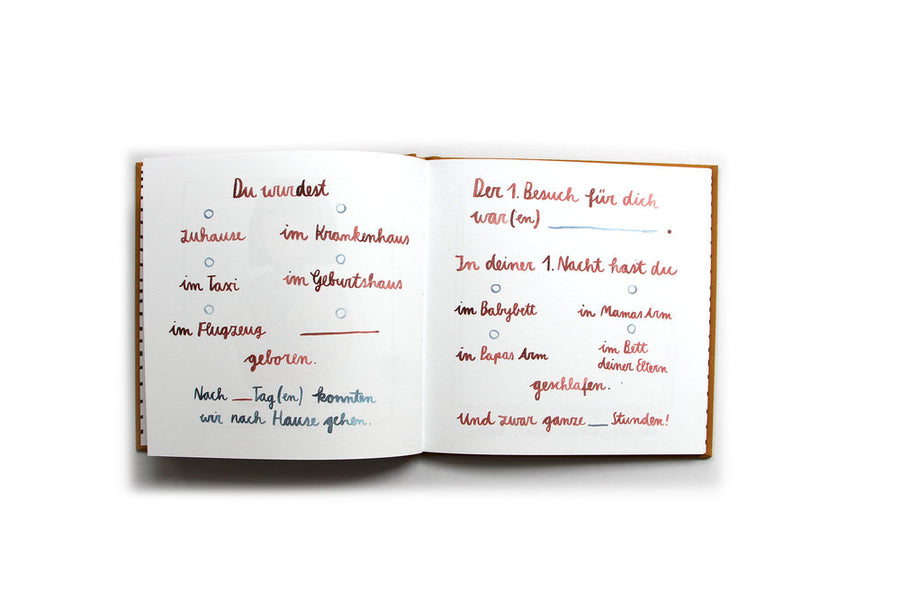 Du wurdest
zuhause im Krankenhaus
im Taxi im Geburtshaus
im Flugzeug ________
geboren.
Nach __ Tag(en) konnten
wir nach Hause gehen.
Der 1. Besuch für dich
war(en) ____________.
In deiner 1. Nacht hast du
im Babybett in Mamas Arm
in Papas Arm im Bett
deiner Eltern
geschlafen.
Und zwar ganze __ Stunden!